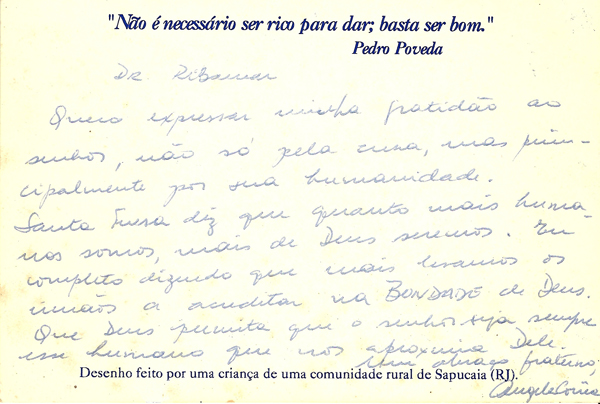 "Não é necessário ser rico para dar; basta ser bom."
Pedro Poveda
Dr. Ribamar
Quero expressar minha gratidão ao
senhor, não só pela cura, mas prin-
cipalmente por sua humanidade.
Santa Teresa diz que quanto mais huma-
nos somos, mais de Deus seremos. Eu
completo dizendo que mais levamos os
irmãos a acreditar na BONDADE de Deus.
Que Deus permita que o senhor seja sempre
esse humano que nos aproxima Dele.
Um abraço fraterno,
Desenho feito por uma criança de uma comunidade rural de Sapucaia (RJ).
Angela